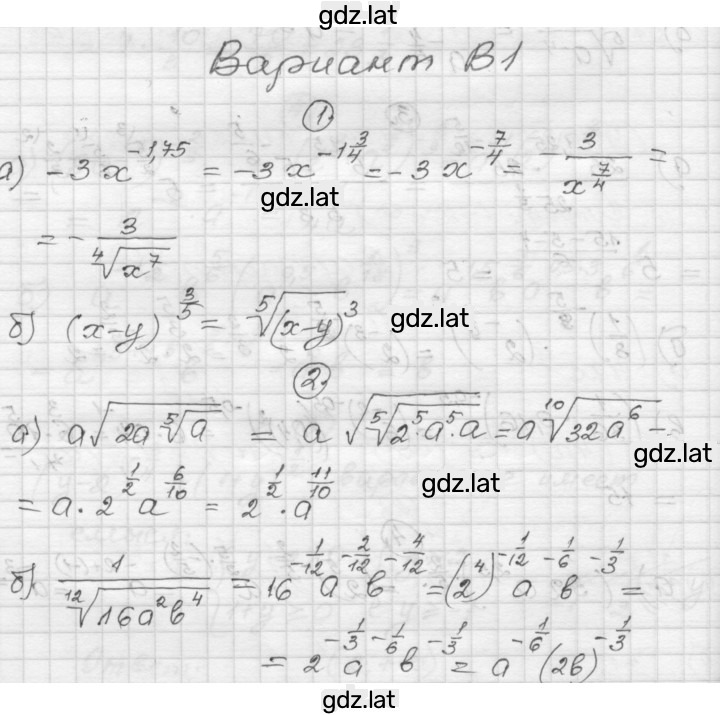 gdz.lat
Вариант В1
1.
а) -3x^{-1,75} = -3x^{-1\frac{3}{4}} = -3x^{-\frac{7}{4}} = -\frac{3}{x^{\frac{7}{4}}} =
gdz.lat
= -\frac{3}{\sqrt[4]{x^7}}
б) (x-y)^{\frac{3}{5}} = \sqrt[5]{(x-y)^3}
gdz.lat
2.
а) a\sqrt{2a\sqrt[5]{a}} = a\sqrt{\sqrt[5]{2^5·a^5·a}} = a\sqrt[10]{32a^6} =
gdz.lat
gdz.lat
= a·2^{\frac{1}{2}}a^{\frac{6}{10}} = 2^{\frac{1}{2}}·a^{\frac{11}{10}}
б) \frac{1}{\sqrt[12]{16a^2b^4}} = 16^{-\frac{1}{12}}a^{-\frac{2}{12}}b^{-\frac{4}{12}} = (2^4)^{-\frac{1}{12}}a^{-\frac{1}{6}}b^{-\frac{1}{3}} =
= 2^{-\frac{1}{3}}a^{-\frac{1}{6}}b^{-\frac{1}{3}} = a^{-\frac{1}{6}}(2b)^{-\frac{1}{3}}
gdz.lat